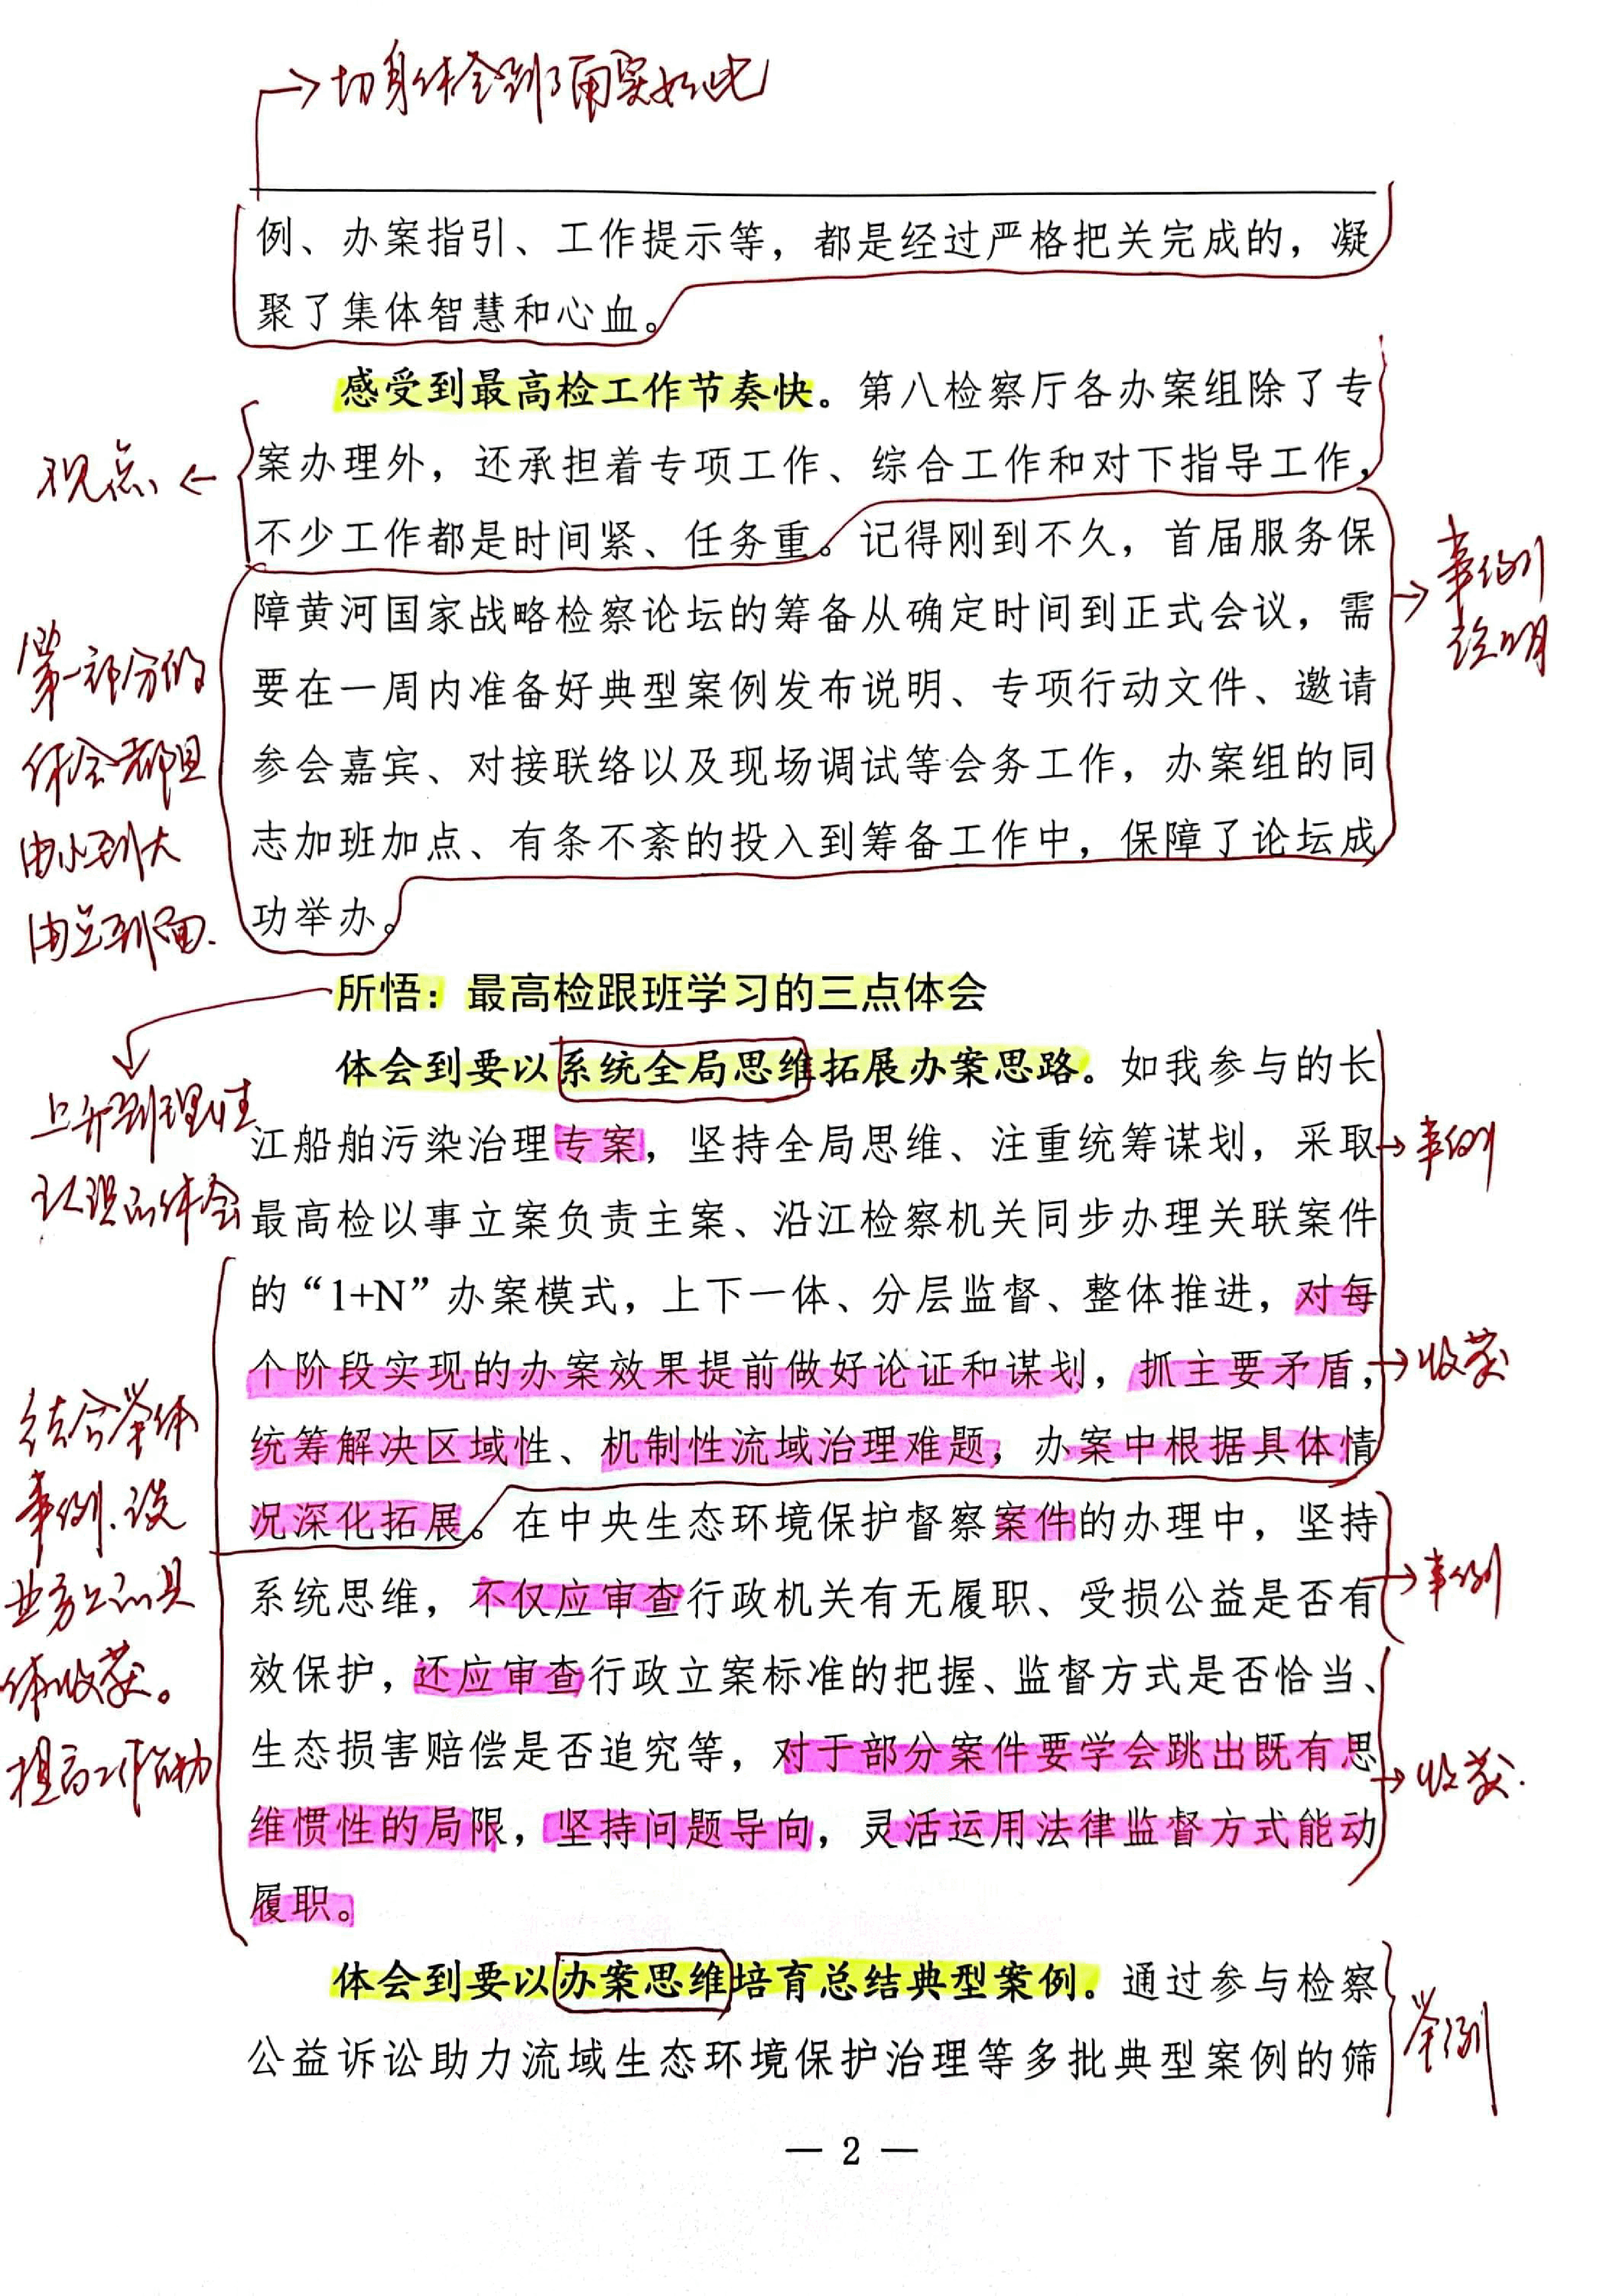 切身体会到了确实如此
例、办案指引、工作提示等，都是经过严格把关完成的，凝
聚了集体智慧和心血。
感受到最高检工作节奏快。第八检察厅各办案组除了专
案办理外，还承担着专项工作、综合工作和对下指导工作，
不少工作都是时间紧、任务重。记得刚到不久，首届服务保
障黄河国家战略检察论坛的筹备从确定时间到正式会议，需
要在一周内准备好典型案例发布说明、专项行动文件、邀请
参会嘉宾、对接联络以及现场调试等会务工作，办案组的同
志加班加点、有条不紊的投入到筹备工作中，保障了论坛成
功举办。
观点
事例
说明
第一部分的
体会都是
由小到大
由点到面.
所悟：最高检跟班学习的三点体会
体会到要以系统全局思维拓展办案思路。如我参与的长
江船舶污染治理专案，坚持全局思维、注重统筹谋划，采取
最高检以事立案负责主案、沿江检察机关同步办理关联案件
的“1+N”办案模式，上下一体、分层监督、整体推进，对每
个阶段实现的办案效果提前做好论证和谋划，抓主要矛盾，
统筹解决区域性、机制性流域治理难题，办案中根据具体情
况深化拓展。在中央生态环境保护督察案件的办理中，坚持
系统思维，不仅应审查行政机关有无履职、受损公益是否有
效保护，还应审查行政立案标准的把握、监督方式是否恰当、
生态损害赔偿是否追究等，对于部分案件要学会跳出既有思
维惯性的局限，坚持问题导向，灵活运用法律监督方式能动
履职。
上升到理性
认识的体会
事例
收获
事例
收获.
结合具体
事例、谈
业务上的具
体收获。
提高工作能力
体会到要以办案思维培育总结典型案例。通过参与检察
公益诉讼助力流域生态环境保护治理等多批典型案例的筛
举例
— 2 —